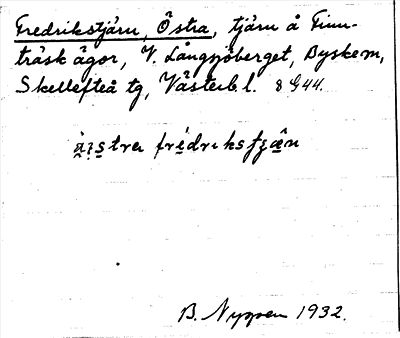 Fredrikstjärn, Östra, tjärn å Finn-
träsk ägor, V. Långsjöberget, Byske sn,
Skellefteå tg, Västerb. l. 8 G 44.
frédrıks
B. Nygren 1932.